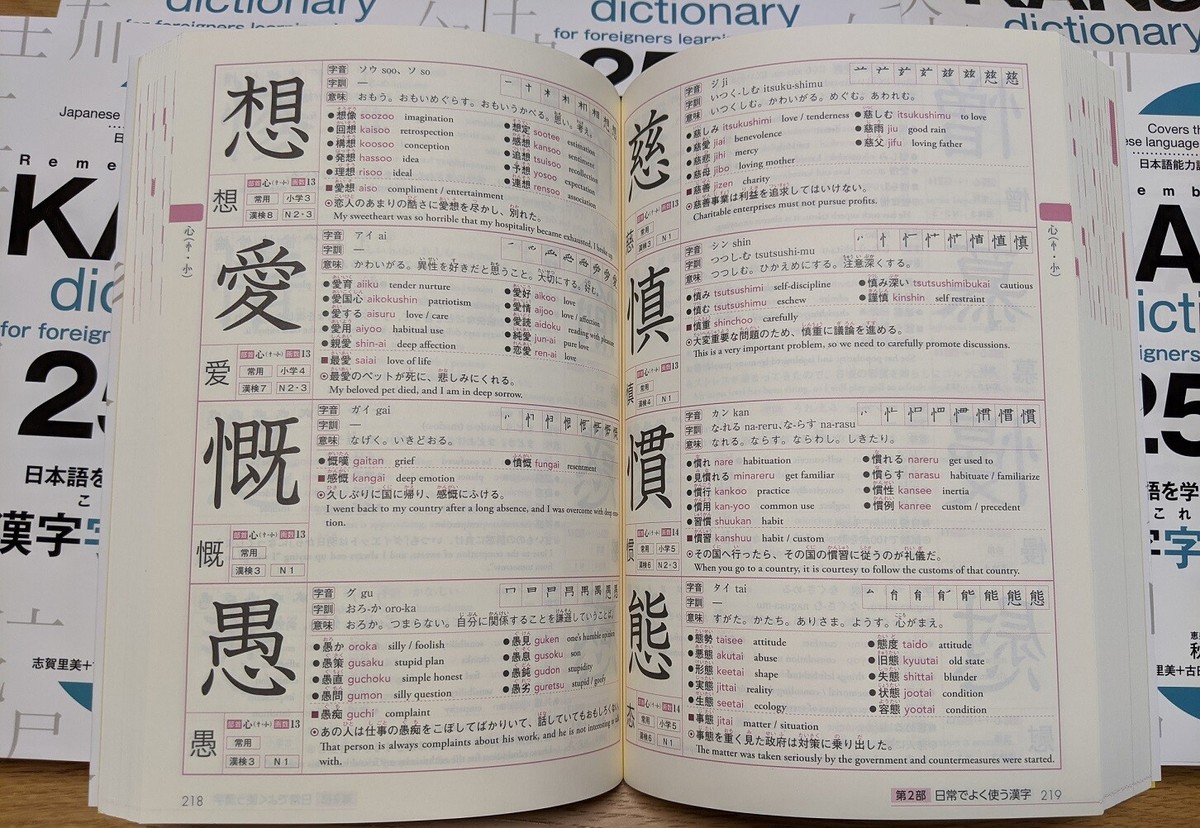 dictionary
for foreigners learni
dictionary
for foreigners learning
dictionary
Japanese
Reme
KA
dic
for foreign
25
日本語を
こ
漢字字
志賀里美+古
Covers th
ese language
日本語能力
emb
A
ictio
igners
25
語を学
これ
字
里美+古田
心(忄・㣺)
想
想
部首 心(忄・㣺) 画数 13
常用 小学3
漢検8 N2・3
字音 ソウ soo、ソ so
字訓 —
意味 おもう。おもいめぐらす。おもいうかべる。思い。考え。
●想像 soozoo imagination
●回想 kaisoo retrospection
●構想 koosoo conception
●発想 hassoo idea
●理想 risoo ideal
●想定 sootee estimation
●感想 kansoo sentiment
●追想 tsuisoo recollection
●予想 yosoo expectation
●連想 rensoo association
■愛想 aiso compliment / entertainment
⦿恋人のあまりの酷さに愛想を尽かし、別れた。
My sweetheart was so horrible that my hospitality became exhausted, I broke
愛
爱
部首 心(忄・㣺) 画数 13
常用 小学4
漢検7 N2・3
字音 アイ ai
字訓 —
意味 かわいがる。異性を好きだと思うこと。大切にする。好む。
●愛育 aiiku tender nurture
●愛国心 aikokushin patriotism
●愛する aisuru love / care
●愛用 aiyoo habitual use
●親愛 shin-ai deep affection
●愛好 aikoo love
●愛情 aijoo love / affection
●愛読 aidoku reading with pleasure
●純愛 jun-ai pure love
●恋愛 ren-ai love
■最愛 saiai love of life
⦿最愛のペットが死に、悲しみにくれる。
My beloved pet died, and I am in deep sorrow.
慨
慨
部首 心(忄・㣺) 画数 13
常用
漢検3 N1
字音 ガイ gai
字訓 —
意味 なげく。いきどおる。
●慨嘆 gaitan grief
●憤慨 fungai resentment
■感慨 kangai deep emotion
⦿久しぶりに国に帰り、感慨にふける。
I went back to my country after a long absence, and I was overcome with deep emo-
tion.
愚
愚
部首 心(忄・㣺) 画数 13
常用
漢検3 N1
字音 グ gu
字訓 おろ-か oro-ka
意味 おろか。つまらない。自分に関係することを謙遜していうことば。
●愚か oroka silly / foolish
●愚策 gusaku stupid plan
●愚直 guchoku simple honest
●愚問 gumon silly question
●愚見 guken one's humble opinion
●愚息 gusoku son
●愚鈍 gudon stupidity
●愚劣 guretsu stupid / goofy
■愚痴 guchi complaint
⦿あの人は仕事の愚痴をこぼしてばかりいて、話していてもおもしろくない
That person is always complaints about his work, and he is not interesting to talk
with.
218
慈
慈
13
常用
漢検3 N1
字音 ジ ji
字訓 いつく-しむ itsuku-shimu
意味 いつくしむ。かわいがる。めぐむ。あわれむ。
●慈しみ itsukushimi love / tenderness
●慈愛 jiai benevolence
●慈悲 jihi mercy
●慈母 jibo loving mother
●慈しむ itsukushimu to love
●慈雨 jiu good rain
●慈父 jifu loving father
■慈善 jizen charity
⦿慈善事業は利益を追求してはいけない。
Charitable enterprises must not pursue profits.
慎
慎
13
常用
漢検4 N1
字音 シン shin
字訓 つつし-む tsutsushi-mu
意味 つつしむ。ひかえめにする。注意深くする。
●慎み tsutsushimi self-discipline
●慎む tsutsushimu eschew
●慎み深い tsutsushimibukai cautious
●謹慎 kinshin self restraint
■慎重 shinchoo carefully
⦿大変重要な問題のため、慎重に議論を進める。
This is a very important problem, so we need to carefully promote discussions.
慣
慣
14
常用 小学5
漢検6 N2・3
字音 カン kan
字訓 な-れる na-reru、な-らす na-rasu
意味 なれる。ならす。ならわし。しきたり。
●慣れ nare habituation
●見慣れる minareru get familiar
●慣行 kankoo practice
●慣用 kan-yoo common use
●習慣 shuukan habit
●慣れる nareru get used to
●慣らす narasu habituate / familiarize
●慣性 kansee inertia
●慣例 kanree custom / precedent
■慣習 kanshuu habit / custom
⦿その国へ行ったら、その国の慣習に従うのが礼儀だ。
When you go to a country, it is courtesy to follow the customs of that country.
態
态
14
常用 小学5
漢検6 N1
字音 タイ tai
字訓 —
意味 すがた。かたち。ありさま。ようす。心がまえ。
●態勢 taisee attitude
●悪態 akutai abuse
●形態 keetai shape
●実態 jittai reality
●生態 seetai ecology
●態度 taido attitude
●旧態 kyuutai old state
●失態 shittai blunder
●状態 jootai condition
●容態 yootai condition
■事態 jitai matter / situation
⦿事態を重く見た政府は対策に乗り出した。
The matter was taken seriously by the government and countermeasures were started.
心(忄・㣺)
第2部 日常でよく使う漢字 219